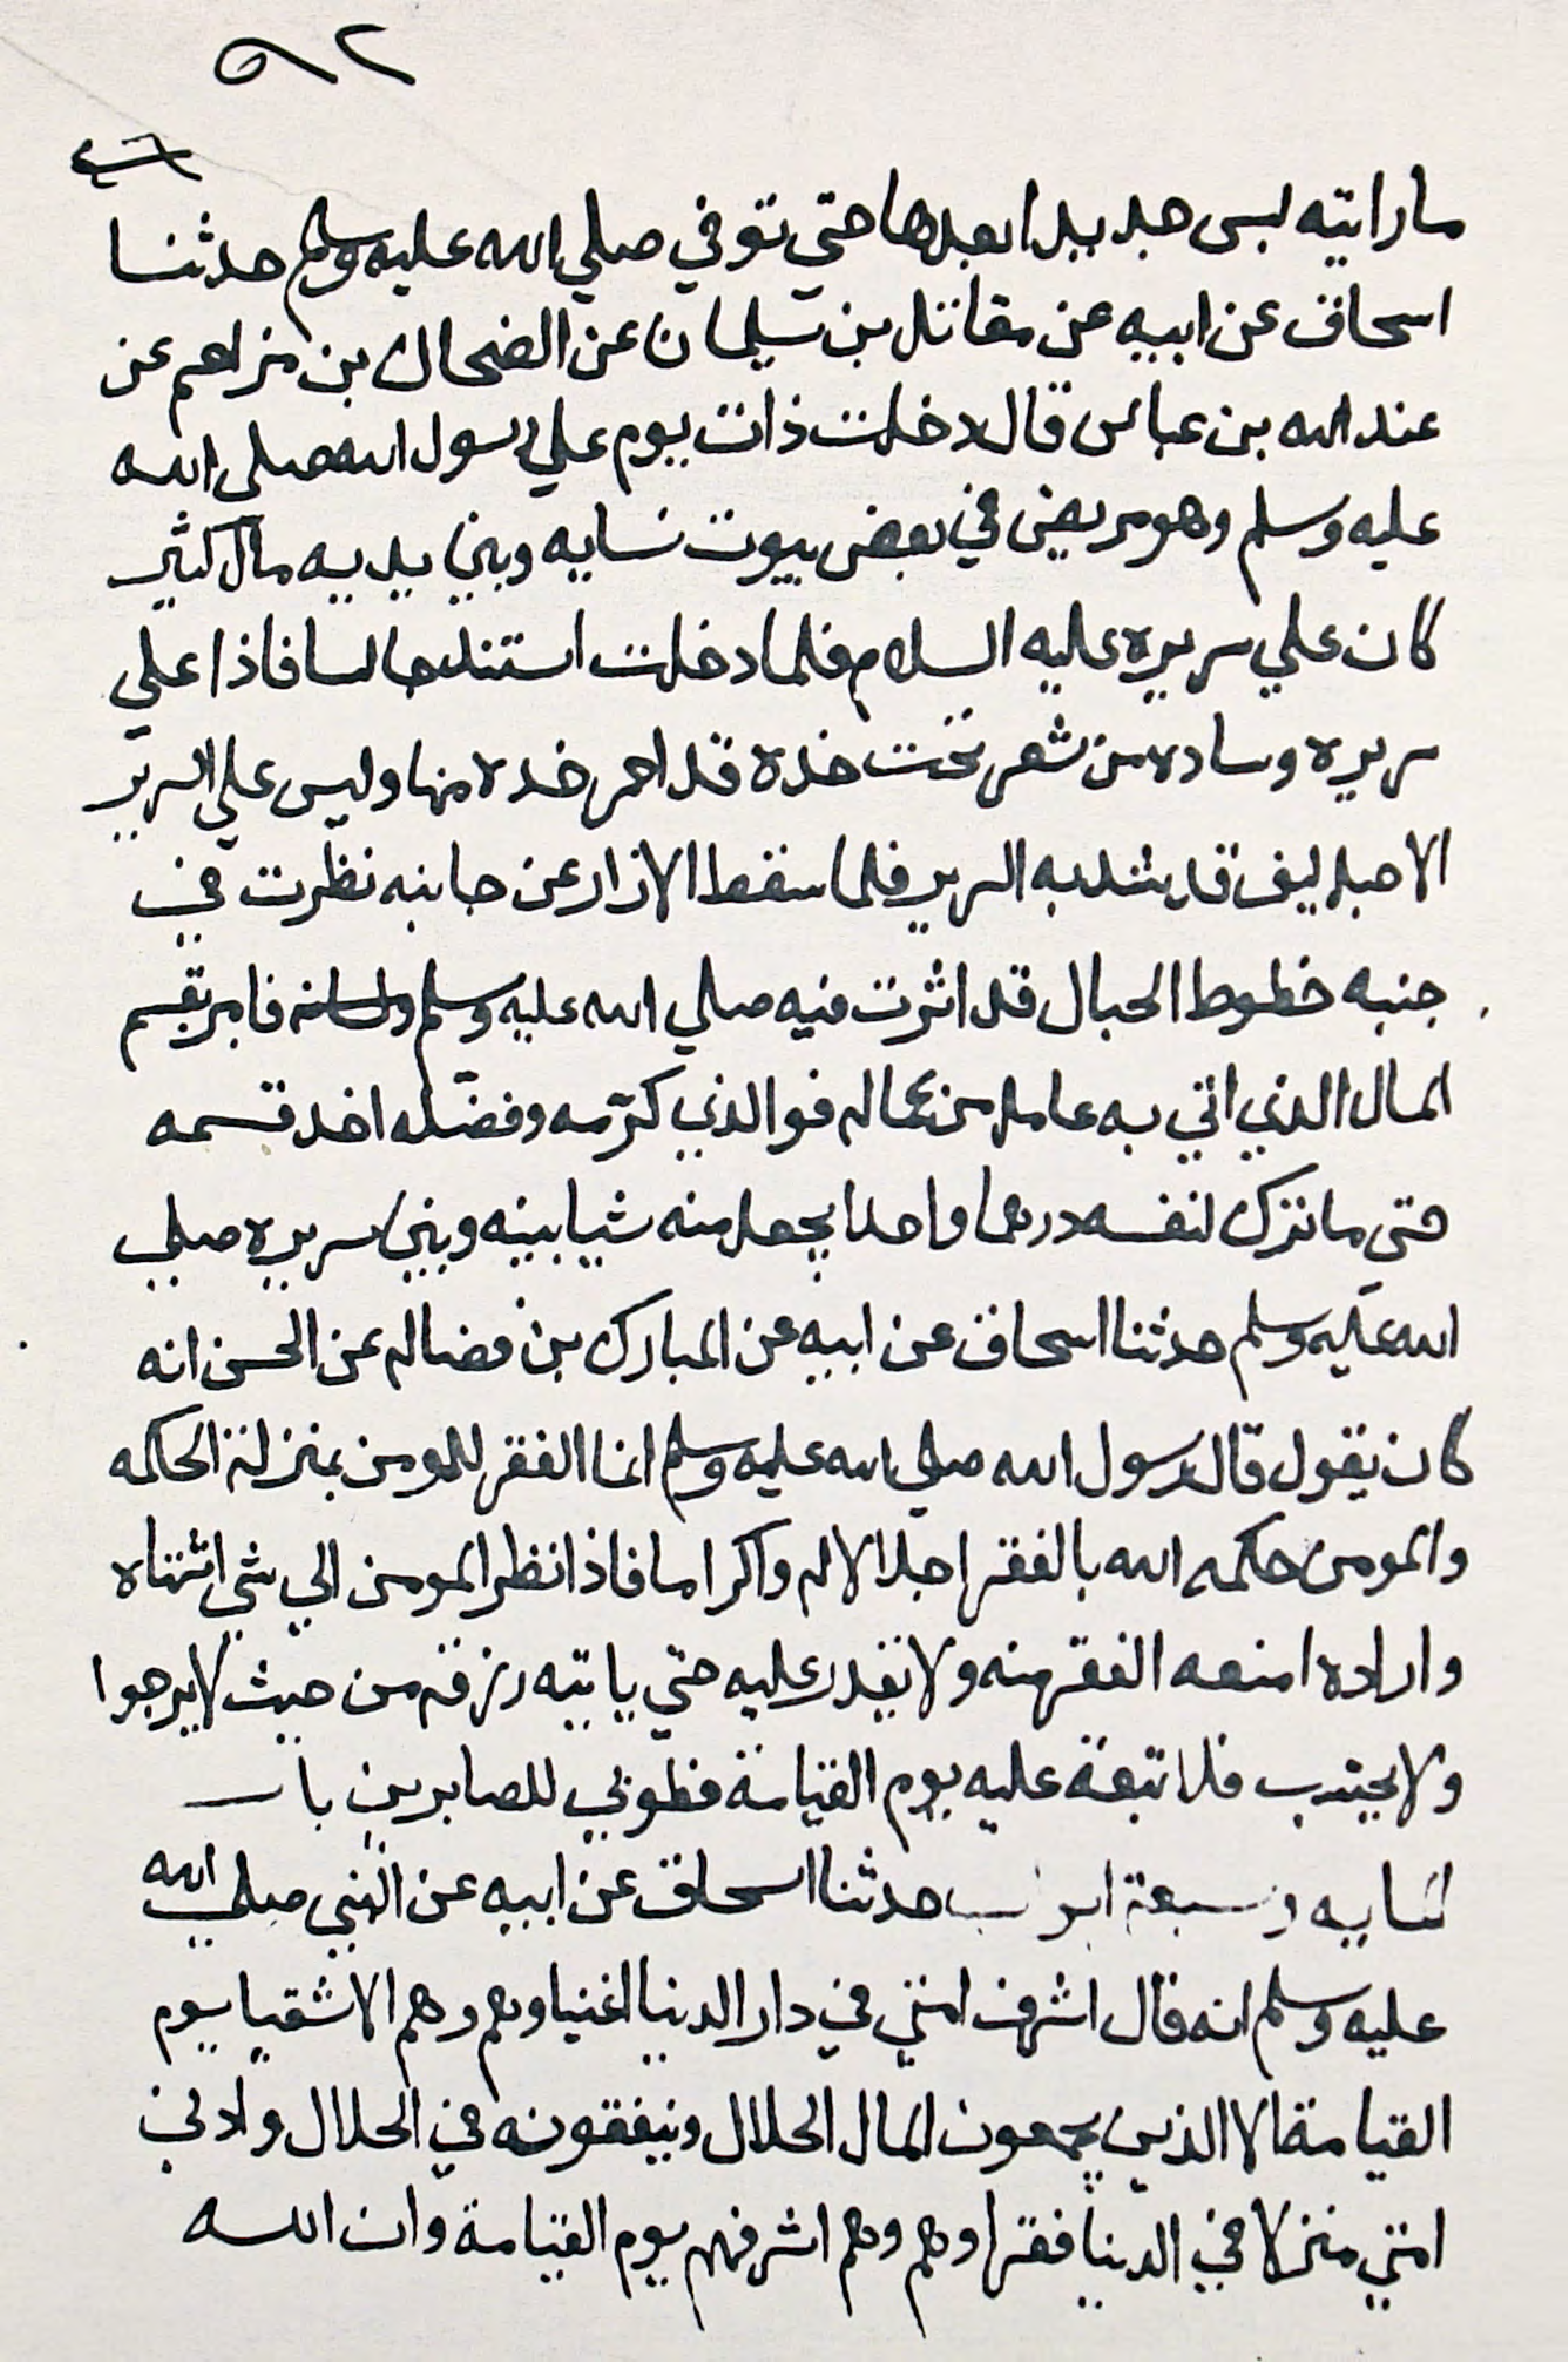 ٥٩٢
ما رايته لبس جديدا بعدها حتي توفي صلي الله عليه وسلم حدثنا
اسحاق عن ابيه عن مقاتل بن سليمان عن الضحاك بن مزاحم عن
عبد الله بن عباس قال دخلت ذات يوم علي رسول الله صلى الله
عليه وسلم وهو مريض في بعض بيوت نسايه وبين يديه مال كثير
كان علي سريره عليه السلام فلما دخلت استند جالسا فاذا علي
سريره وساده من شعر تحت خده قد احمر خده منها وليس علي السرير
الا حبل ليف قد شد به السرير فلما سقط الازار عن جانبه نظرت في
جنبه خطوط الحبال قد اثرت فيه صلي الله عليه وسلم فامر بقسم
المال الذي اتي به عامل من عماله فوالذي كرّمه وفضله اخذ قسمه
حتى ما ترك لنفسه درهما واحدا يجعل منه شيا بينه وبين سريره صلي
الله عليه وسلم حدثنا اسحاق عن ابيه عن المبارك بن فضاله عن الحسن انه
كان يقول قال رسول الله صلي الله عليه وسلم انما الفقر للمومن بمنزلة الحكمه
والمومن حكمه الله بالفقر اجلالا له واكراما فاذا نظر المومن الي شي اشتهاه
واراده امنعه الفقر منه ولا يقدر عليه حتي ياتيه رزقه من حيث لا يرجوا
ولا يحتسب فلا تبعة عليه يوم القيامة فطوبي للصابرين باب
لنسايه وسبعة ابواب حدثنا اسحاق عن ابيه عن النبي صلي الله
عليه وسلم انه قال اشرف امتي في دار الدنيا اغنياوهم وهم الاشقيا يوم
القيامة الا الذين يجمعون المال الحلال وينفقونه في الحلال وادني
امتي منزلا في الدنيا فقراوهم وهم اشرفهم يوم القيامة وان الله